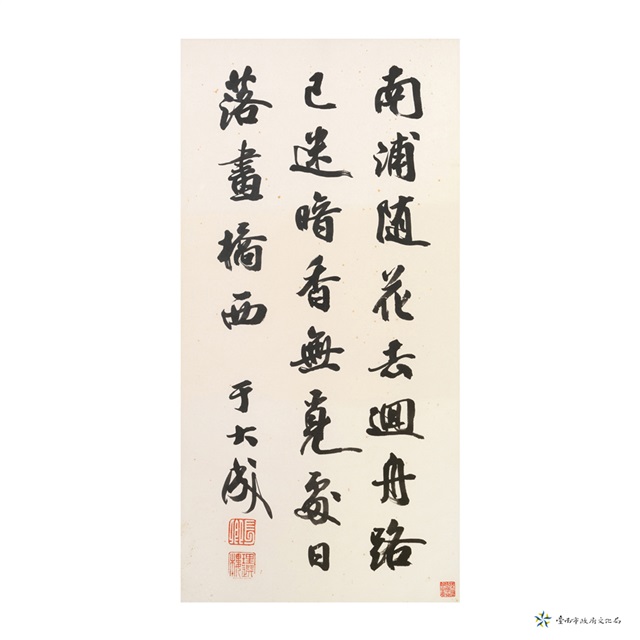 南浦随花去迴舟路
已迷暗香無覓處日
落畫橋西
于大成
臺南市政府文化局